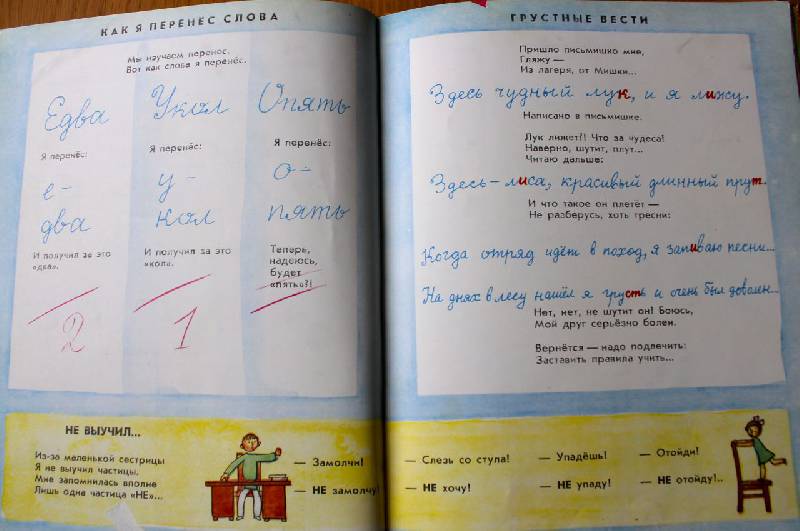 КАК Я ПЕРЕНЕС СЛОВА
Мы изучаем перенос.
Вот как слова я перенёс.
Едва
Укол
Опять
Я перенёс:
Я перенёс:
Я перенёс:
е-
у-
о-
два
кол
пять
И получил за это
«два».
И получил за это
«кол».
Теперь,
надеюсь,
будет
«пять»?!
2
1
НЕ ВЫУЧИЛ...
Из-за маленькой сестрицы
Я не выучил частицы,
Мне запомнилась вполне
Лишь одна частица «НЕ»...
— Замолчи!
— НЕ замолчу!
ГРУСТНЫЕ ВЕСТИ
Пришло письмишко мне,
Гляжу —
Из лагеря, от Мишки...
Здесь чудный лук, и я лижу.
Написано в письмишке.
Лук лижет?! Что за чудеса!
Наверно, шутит, плут...
Читаю дальше:
Здесь – лиса, красивый длинный прут.
И что такое он плетёт —
Не разберусь, хоть тресни:
Когда отряд идёт в поход, я запиваю песни...
На днях в лесу нашёл я грусть и очень был доволен...
Нет, нет, не шутит он! Боюсь,
Мой друг серьёзно болен.
Вернётся — надо подлечить:
Заставить правила учить...
— Слезь со стула!
— Упадёшь!
— Отойди!
— НЕ хочу!
— НЕ упаду!
— НЕ отойду!..